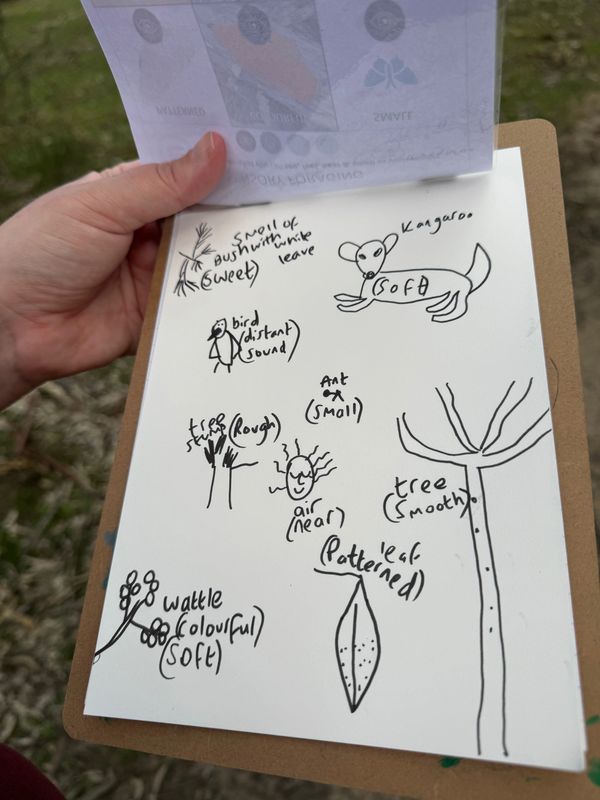 PATTERNED
COLOURFUL
SMALL
SENSORY FORAGING
Smell of
Bush with white
leave
(sweet)
Kangaroo
(Soft)
bird
(distant
sound)
Ant
(small)
tree
stump (Rough)
air
(near)
tree
(smooth)
leaf
(Patterned)
wattle
(colourful)
(soft)